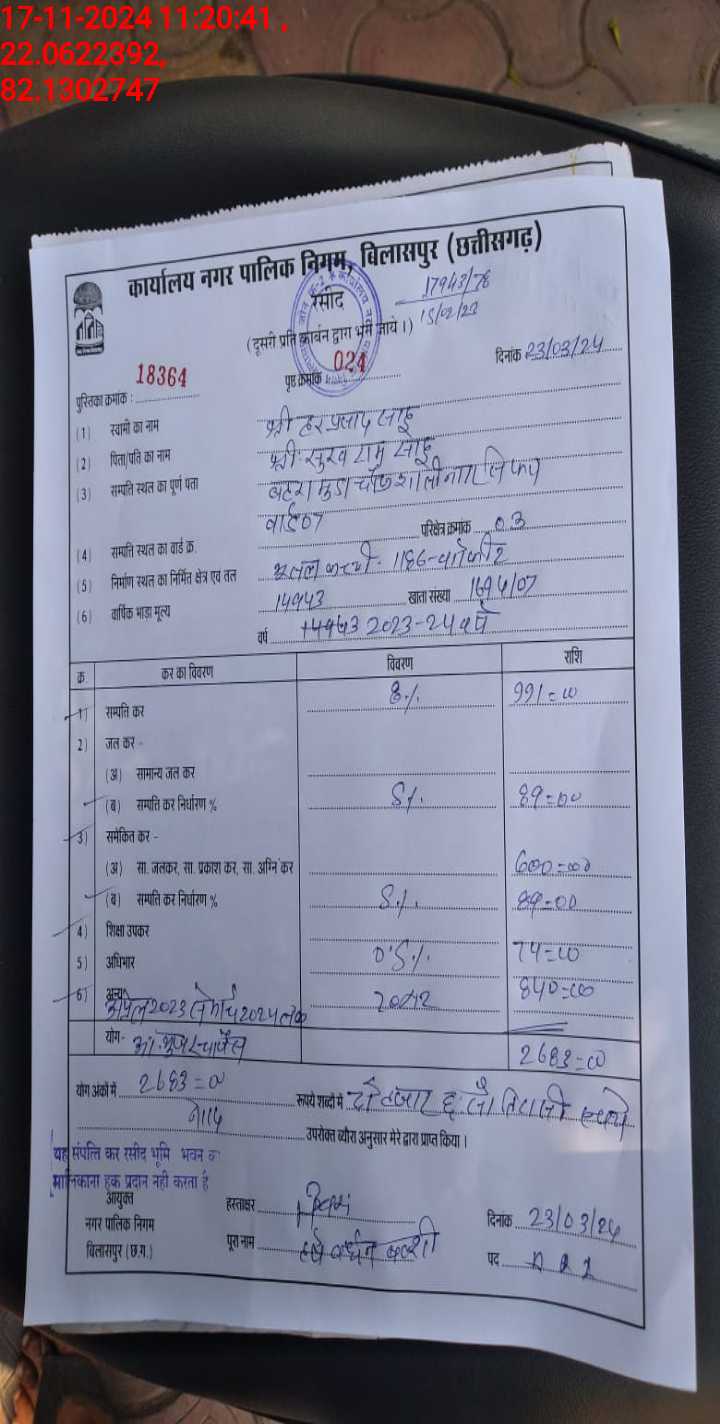 17-11-2024 11:20:41,
22.0622392,
82.1302747
कार्यालय नगर पालिक निगम, बिलासपुर (छत्तीसगढ़)
रसीद 17943/78
(दूसरी प्रति कार्बन द्वारा भरी जाये।) 15/02/22
पुस्तिका क्रमांक : 18364 पृष्ठ क्रमांक 024 दिनांक 23/03/24
(1) स्वामी का नाम श्री हर प्रसाद साहू
(2) पिता/पति का नाम श्री सुखराम साहू
(3) सम्पति स्थल का पूर्ण पता
वार्ड 07
(4) सम्पति स्थल का वार्ड क्र. परिक्षेत्र क्रमांक 03
(5) निर्माण स्थल का निर्मित क्षेत्र एवं तल
(6) वार्षिक भाड़ा मूल्य 14943 खाता संख्या
वर्ष 14943 2023-24 वर्ष
क्र. कर का विवरण विवरण राशि
1) सम्पति कर 8% 991=00
2) जल कर -
(अ) सामान्य जल कर
(ब) सम्पति कर निर्धारण % 89=00
3) समेकित कर -
(अ) सा. जलकर, सा. प्रकाश कर, सा. अग्नि कर 600=00
(ब) सम्पति कर निर्धारण % 89=00
4) शिक्षा उपकर
5) अधिभार 0.5% 74=00
6) अन्य 840=00
अप्रैल 2023 से मार्च 2024 तक
योग- 2683=00
योग अंकों में 2683=00 रूपये शब्दों में दो हजार छः सौ तिरासी रूपये
मात्र उपरोक्त ब्यौरा अनुसार मेरे द्वारा प्राप्त किया।
यह संपत्ति कर रसीद भूमि भवन का
मालिकाना हक प्रदान नही करता है
आयुक्त
नगर पालिक निगम
बिलासपुर (छ.ग.)
हस्ताक्षर दिनांक 23/03/24
पूरा नाम हर्ष वर्धन पद